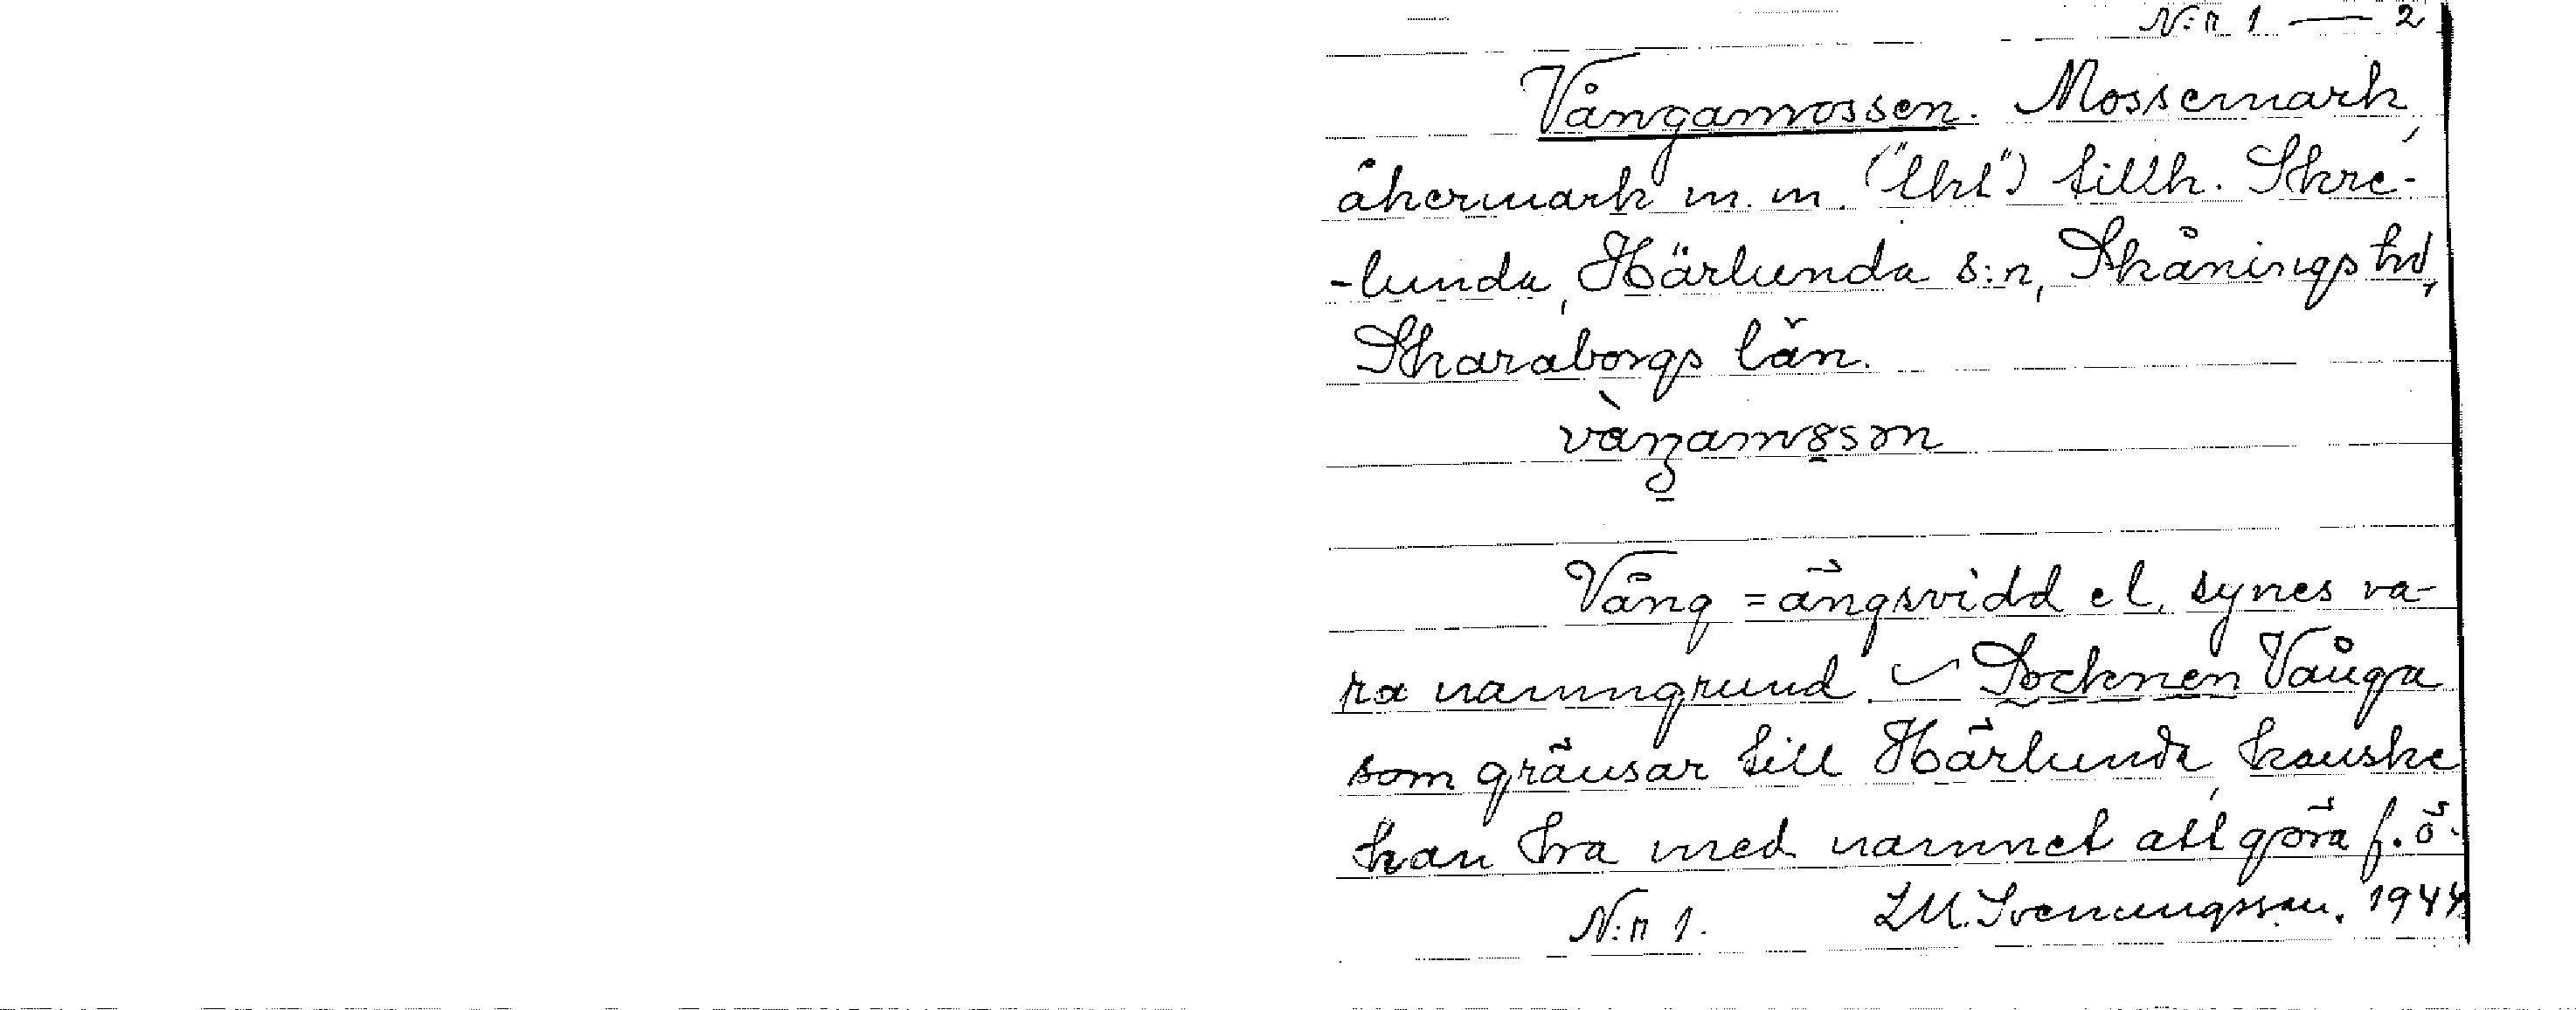 N:r 1 — 2
Vångamossen. Mossemark,
åkermark m. m. ("lht") tillh. Skre-
-lunda, Härlunda s:n, Skånings hd,
Skaraborgs län.
Vång = ängsvidd el. synes va-
ra namngrund. – Socknen Vånga
som gränsar till Härlunda, kanske
kan ha med namnet att göra f. ö.
N:r 1. L.M. Svenungsson. 1944